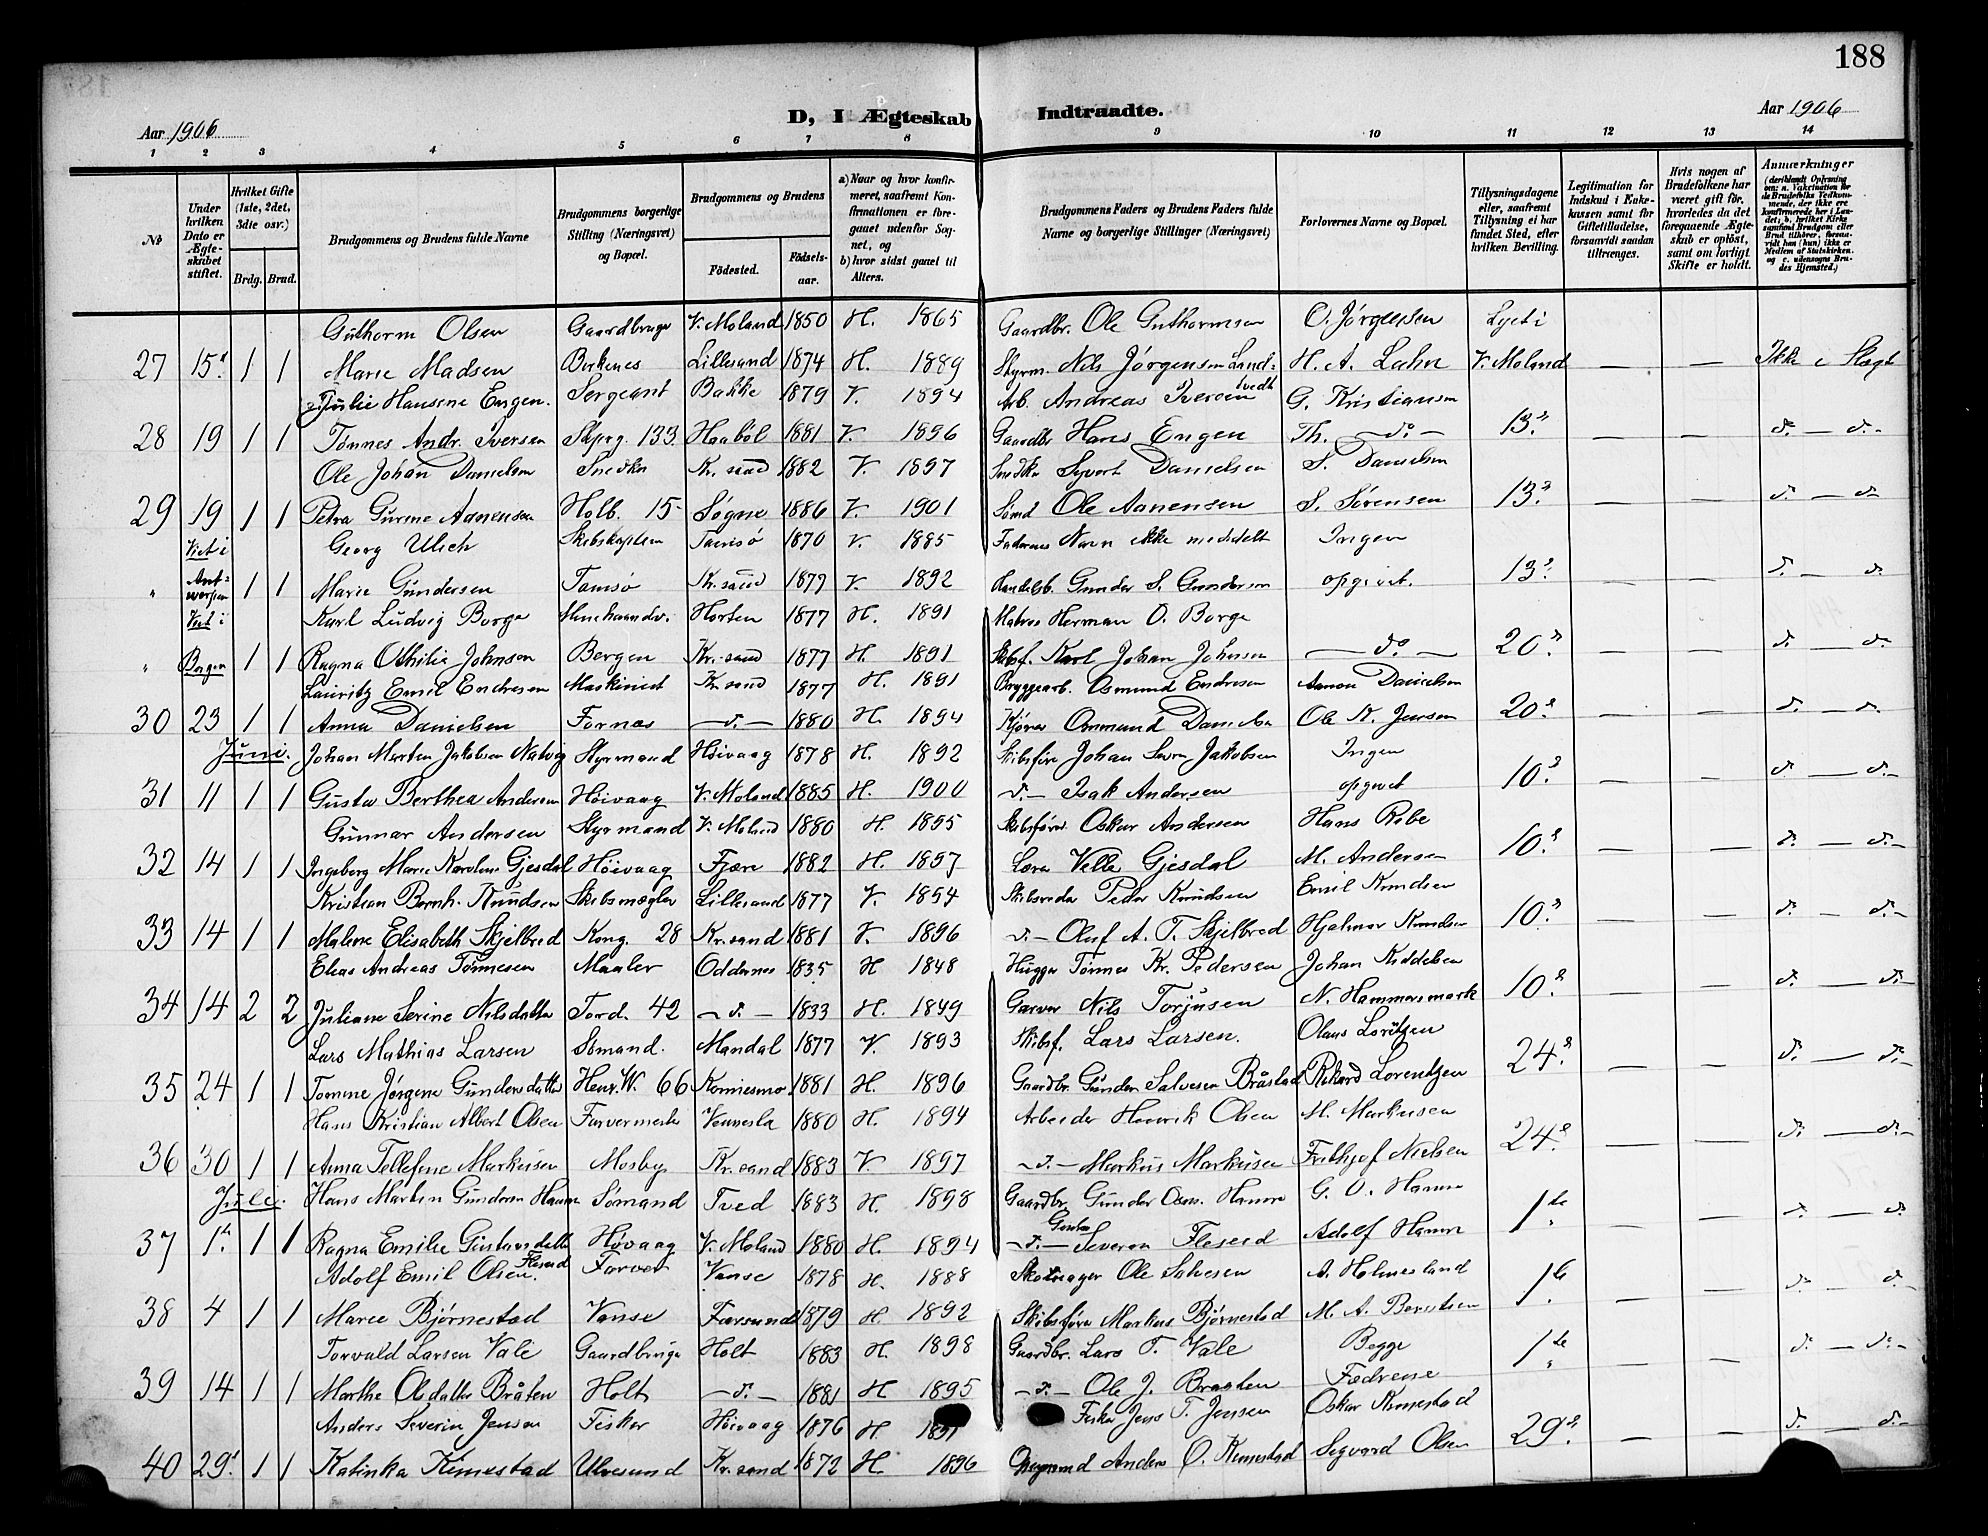 188
D, I Ægteskab Indtraadte.
Aar 1906
Aar 1906
1 2 3 4 5 6 7 8 9 10 11 12 13 14
No
Under hvilken Dato er Ægteskabet stiftet.
Hvilket Gifte (1ste, 2det, 3die osv.)
Brdg. Brud.
Brudgommens og Brudens fulde Navne
Brudgommens borgerlige Stilling (Næringsvei) og Bopæl.
Brudgommens og Brudens
Födested. Födselsaar.
a) Naar og hvor konfirmeret, saafremt Konfirmationen er foregaaet udenför Sognet, og
b) hvor sidst gaaet til Alters.
Brudgommens Faders og Brudens Faders fulde Navne og borgerlige Stillinger (Næringsvei)
Forlovernes Navne og Bopæl.
Tillysningsdagene eller, saafremt Tillysning ei har fundet Sted, efter hvilken Bevilling.
Legitimation for Indskud i Enkekassen samt för Giftetilladelse, forsaavidt saadan tiltrænges.
Hvis nogen af Brudefolkene har været gift för, hvorledes da det foregaaende Ægteskab er oplöst, samt om lovligt Skifte er holdt.
Anmærkninger
Guthorm Olsen Gaardbruge V. Moland 1850 H. 1865 Gaardbr. Ole Guthormsen O. Jørgensen Lyst i
27 15. 1 1 Marie Madsen Birkenes Lillesand 1874 H. 1889 Styrm. Nils Jörgensen H. A. Lahn V. Moland — — Ikke i Slægt
Julie Hansine Engen. Sergeant Bakke 1879 V. 1894 Arb. Andreas Iversen G. Kristiansen
28 19 1 1 Tønnes Andr. Iversen Skprg. 133. Haaböl 1881 V. 1896 Gaardbr Hans Engen Th. — do — 13. — — d. — d. —
Ole Johan Danielsen Snedker Kr. sand 1882 V. 1897 Snedke Syvert Danielsen S. Danielsen
29 19 1 1 Petra Gurine Aanensen Holb. 15 Søgne 1886 V. 1901 Sømd Ole Aanensen S. Sörensen 13. — — d. — d.
Viet i Georg Ulich Skibskaptein Tamsø 1870 V. 1885 Faderens Navn ikke meddelt Ingen
" Antwerpen 1 1 Marie Gundersen Tamsø Kr. sand 1877 V. 1892 Handelsb. Gunder S. Gundersen opgivet. 13. — — d. — d.
Viet i Karl Ludvig Borge Horten 1877 H. 1891 Matros Herman O. Borge
" Bergen 1 1 Ragna Othilia Johnsen Bergen Kr. sand 1877 H. 1891 Skibsf. Karl Johan Johnsen — do — 20. — — d. — d.
Lauritz Emil Endresen Maskinist Kr. sand 1877 H. 1891 Bryggearb. Osmund Endresen Aanon Danielsen
30 23 1 1 Anna Danielsen Fornæs — d. — 1880 H. 1894 Osmund Danielsen Ole N. Jensen 20. — — d. — d.
Juni. Johan Morten Jakobsen Natvig Styrmand Höivaag 1878 H. 1892 Skibsføre Johan Jakobsen Ingen
31 11 1 1 Gusta Berthea Andersen Höivaag V. Moland 1885 H. 1900 d. — Isak Andersen opgivet 10. — — d. — d. —
Gunnar Andersen Styrmand V. Moland 1880 H. 1895 Skibsføre Oskar Andersen Hans Ribe
32 14 1 1 Ingeborg Marie Karoline Gjesdal Höivaag Fjære 1882 H. 1897 Lærer Velle Gjesdal M. Andersen 10. — — d. — d. —
Kristian Bernh. Knudsen Skibsmægler Lillesand 1877 V. 1894 Skibsreder Peder Knudsen Emil Knudsen
33 14 1 1 Malene Elisabeth Skjelbred Kong. 28 Kr. sand 1881 V. 1896 d. — Oluf A. T. Skjelbred Hjalmar Knudsen 10. — — d. — d. —
Elias Andreas Tønnesen Maaler Oddernes 1835 H 1848 Hugger Tønnes Kr. Pedersen Johan Kiddelsen
34 14 2 2 Juliane Serine Nilsdatter Tord. 42 — d. — 1833 H. 1849 Garver Nils Torjusen N. Hammersmark 10. — — d. — d. —
Lars Mathias Larsen Sömand. Mandal 1877 V. 1893 Skibsf. Lars Larsen. Olaus Loritzen
35 24 1 1 Tomine Jørgene Gundersdatter Henr. W. 66 Konnesmo. 1881 H. 1896 Gaardbr. Gunder Salvesen Bråstad Rikard Lorentzen 24. — — d. — d. —
Hans Kristian Albert Olsen Farvermester Vennesla 1880 H. 1894 Arbeider Henrik Olsen M. Markusen
36 30 1 1 Anna Tellefine Markusen Mosby Kr. sand 1883 V. 1897 — d. — Markus Markusen Frithjof Nielsen 24. — — d. — d. —
Juli. Hans Martin Gundersen Hamre Sömand Tved 1883 H. 1898 Gaardbr. Gunder Osm. Hamre G. O. Hamre
37 1. 1 1 Ragna Emilie Gustavsdatter Høvaag V. Moland 1880 H. 1894 — d. — Severin Adolf Hamre 1te — — d. — d.
Adolf Emil Olsen. Farver Vanse 1878 H. 1888 Ole Salvesen A. Holmesland
38 4 1 1 Marie Bjørnestad Vanse Farsund 1879 H 1892 Skibsføre Markus Bjørnestad M. A. Berntsen 1te — — d. — d.
Torvald Larsen Vale Gaardbruge Holt 1883 H. 1898 Gaardbr. Lars T. Vale Begge
39 14 1 1 Marthe Olsdatter Bråten Holt — d. — 1881 H 1895 — d. — Ole J. Braaten Fædrene 1te — — d. — d. —
Anders Severin Jensen Fisker Höivaag 1876 H 1891 Fisker Jens T. Jensen Oskar Kimestad
40 29. 1 1 Katinka Kimestad Ulvesund Kr. sand 1872 H. 1896 Anders O. Kimestad Sigvard Olsen 29. — — d. — d. —